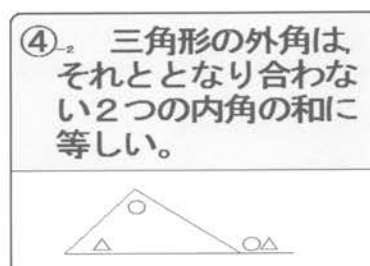 ④-2 三角形の外角は,
それととなり合わな
い2つの内角の和に
等しい。
○
△ ○△